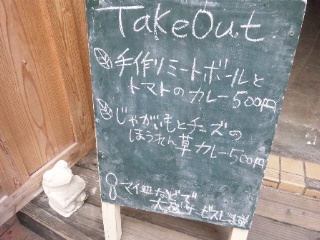 TakeOut
手作りミートボールと
トマトのカレー500円
じゃがいもとチーズの
ほうれん草カレー500円
マイ
サービスします